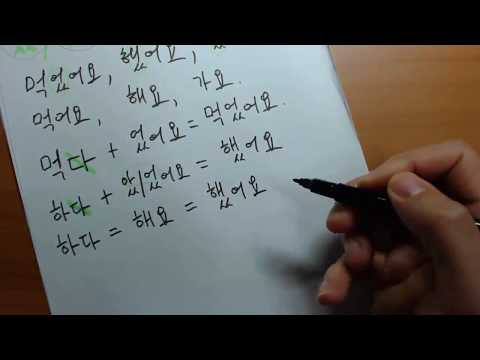 먹었어요, 했어요,
먹어요, 해요, 가요.
먹다 + 었어요 = 먹었어요.
하다 + 았/었어요 = 했어요
하다 = 해요 = 했어요